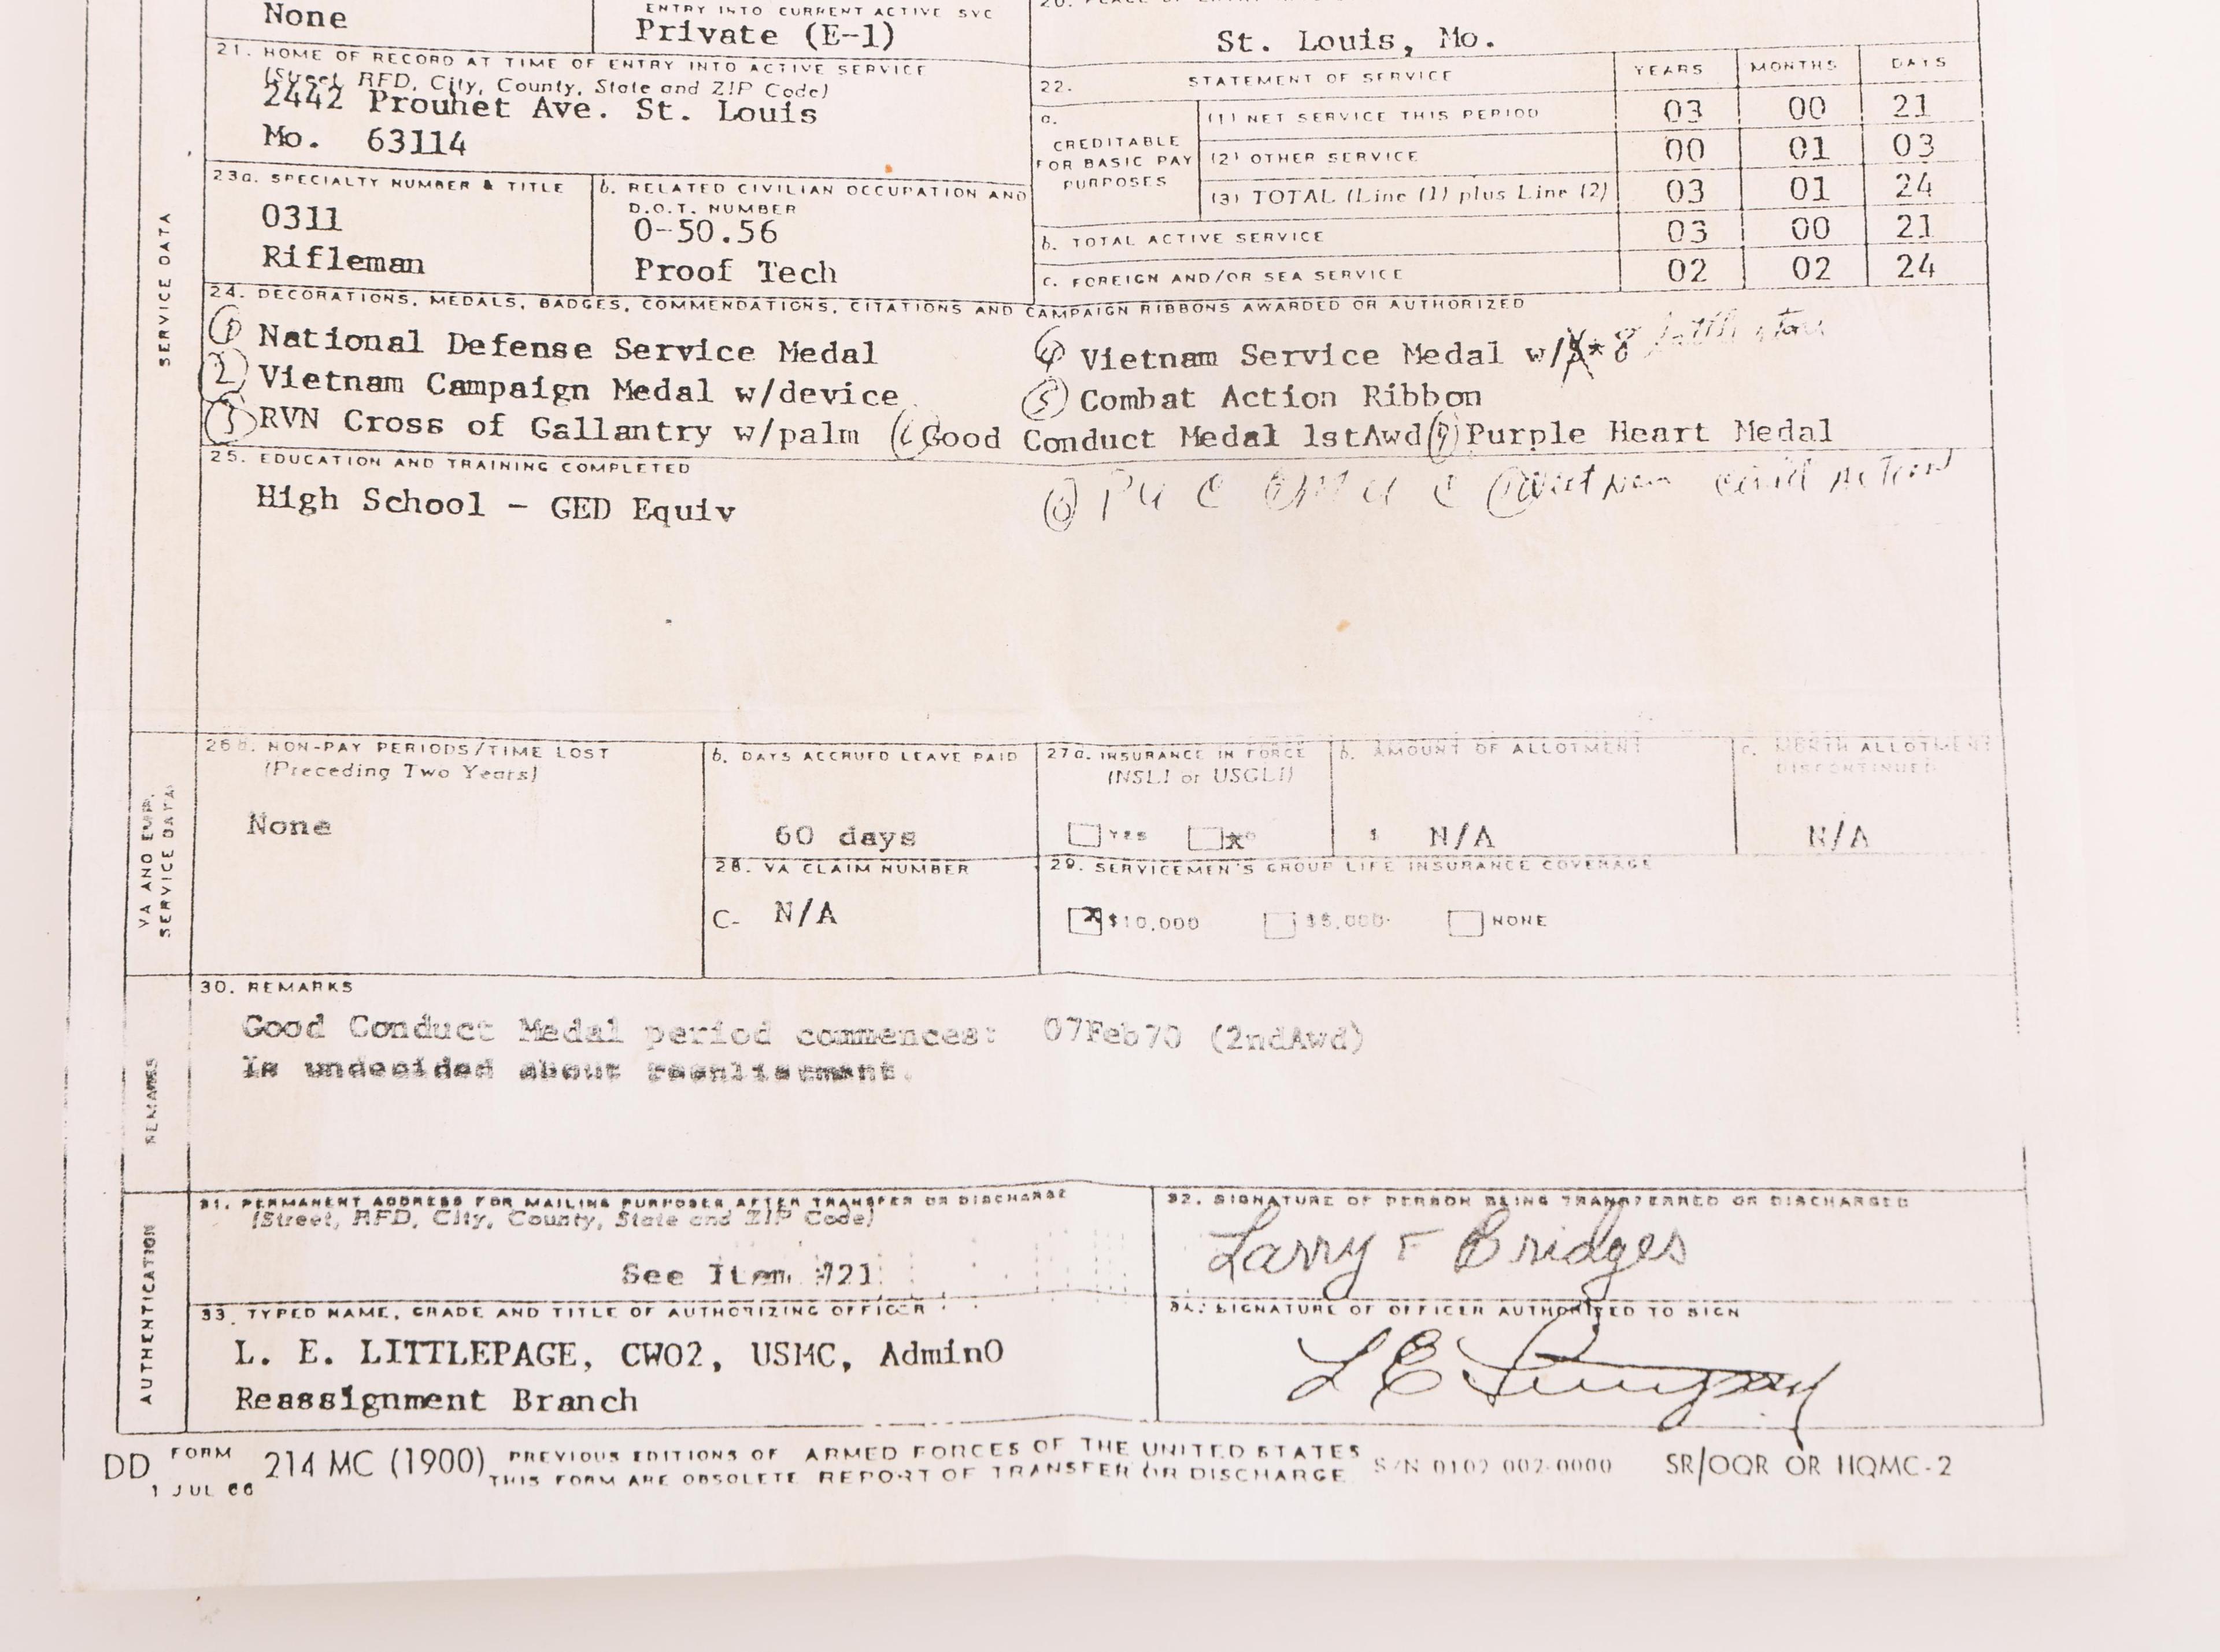 None
ENTRY INTO CURRENT ACTIVE SVC
Private (E-1)
St. Louis, Mo.
21. HOME OF RECORD AT TIME OF ENTRY INTO ACTIVE SERVICE
(Street, RFD, City, County, State and ZIP Code)
2442 Prouhet Ave. St. Louis
Mo. 63114
22. STATEMENT OF SERVICE YEARS MONTHS DAYS
a. CREDITABLE FOR BASIC PAY PURPOSES
(1) NET SERVICE THIS PERIOD 03 00 21
(2) OTHER SERVICE 00 01 03
(3) TOTAL (Line (1) plus Line (2) 03 01 24
b. TOTAL ACTIVE SERVICE 03 00 21
c. FOREIGN AND/OR SEA SERVICE 02 02 24
23a. SPECIALTY NUMBER & TITLE
0311
Rifleman
b. RELATED CIVILIAN OCCUPATION AND
D.O.T. NUMBER
0-50.56
Proof Tech
SERVICE DATA
24. DECORATIONS, MEDALS, BADGES, COMMENDATIONS, CITATIONS AND CAMPAIGN RIBBONS AWARDED OR AUTHORIZED
1 National Defense Service Medal 4 Vietnam Service Medal w/ * 8
2 Vietnam Campaign Medal w/device 5 Combat Action Ribbon
3 RVN Cross of Gallantry w/palm Good Conduct Medal 1stAwd Purple Heart Medal
25. EDUCATION AND TRAINING COMPLETED
High School - GED Equiv
Action
VA AND EMP. SERVICE DATA
26a. NON-PAY PERIODS/TIME LOST
(Preceding Two Years)
None
b. DAYS ACCRUED LEAVE PAID
60 days
27a. INSURANCE IN FORCE
(NSLI or USGLI)
YES X
b. AMOUNT OF ALLOTMENT
$ N/A
c. MONTH ALLOTMENT
DISCONTINUED
N/A
28. VA CLAIM NUMBER
C- N/A
29. SERVICEMEN'S GROUP LIFE INSURANCE COVERAGE
X $10,000 $5,000 NONE
REMARKS
30. REMARKS
Good Conduct Medal period commences: 07Feb70 (2ndAwd)
Is undecided about reenlistment.
AUTHENTICATION
31. PERMANENT ADDRESS FOR MAILING PURPOSES AFTER TRANSFER OR DISCHARGE
(Street, RFD, City, County, State and ZIP Code)
See Item #21
32. SIGNATURE OF PERSON BEING TRANSFERRED OR DISCHARGED
Larry F Bridges
33. TYPED NAME, GRADE AND TITLE OF AUTHORIZING OFFICER
L. E. LITTLEPAGE, CWO2, USMC, AdminO
Reassignment Branch
34. SIGNATURE OF OFFICER AUTHORIZED TO SIGN
L E
DD FORM 214 MC (1900)
1 JUL 66
PREVIOUS EDITIONS OF
THIS FORM ARE OBSOLETE
ARMED FORCES OF THE UNITED STATES
REPORT OF TRANSFER OR DISCHARGE
S/N 0102-002-0000 SR/OQR OR HQMC-2